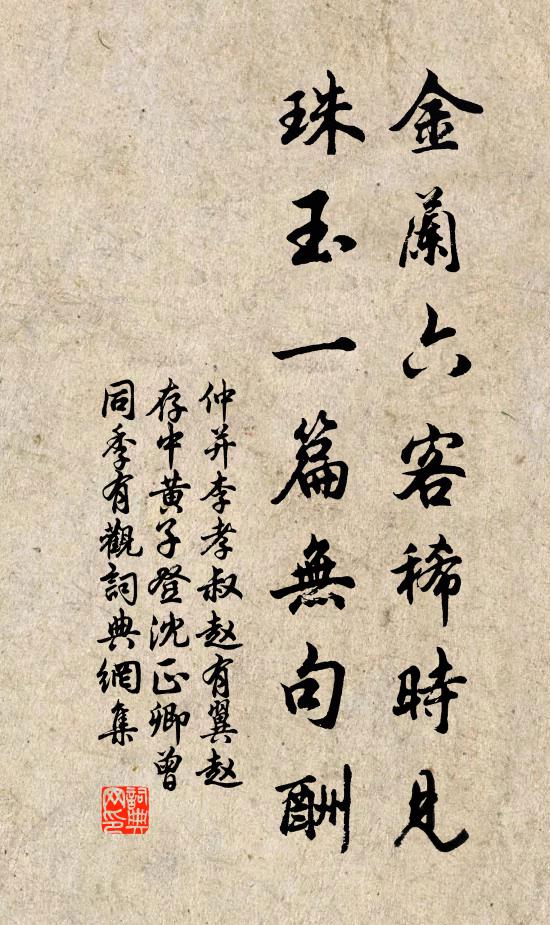 金蘭六客稀時見
珠玉一篇無句酬
仲并李孝叔赵有翼赵
存中黄子登沈正卿曾
同季有觀詞典網集
詞典网印